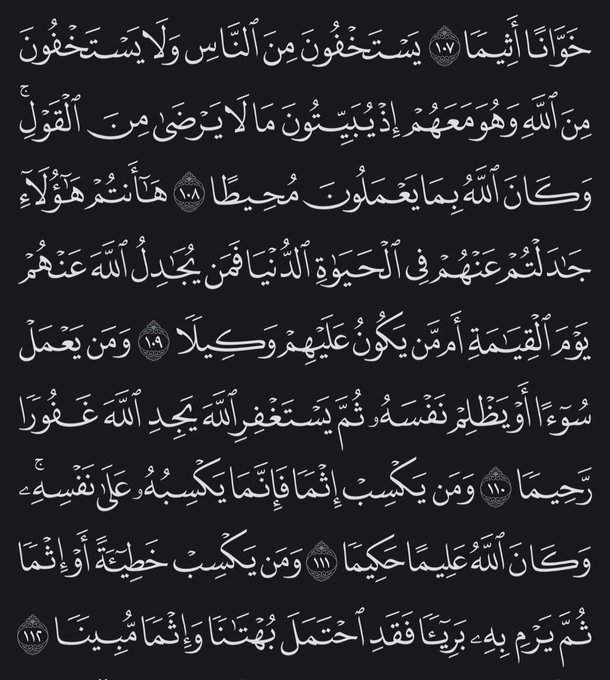 خَوَّانًا أَثِيمًا ١٠٧ يَسْتَخْفُونَ مِنَ ٱلنَّاسِ وَلَا يَسْتَخْفُونَ
مِنَ ٱللَّهِ وَهُوَ مَعَهُمْ إِذْ يُبَيِّتُونَ مَا لَا يَرْضَىٰ مِنَ ٱلْقَوْلِ ۚ
وَكَانَ ٱللَّهُ بِمَا يَعْمَلُونَ مُحِيطًا ١٠٨ هَـٰٓأَنتُمْ هَـٰٓؤُلَآءِ
جَـٰدَلْتُمْ عَنْهُمْ فِى ٱلْحَيَوٰةِ ٱلدُّنْيَا فَمَن يُجَـٰدِلُ ٱللَّهَ عَنْهُمْ
يَوْمَ ٱلْقِيَـٰمَةِ أَم مَّن يَكُونُ عَلَيْهِمْ وَكِيلًا ١٠٩ وَمَن يَعْمَلْ
سُوٓءًا أَوْ يَظْلِمْ نَفْسَهُۥ ثُمَّ يَسْتَغْفِرِ ٱللَّهَ يَجِدِ ٱللَّهَ غَفُورًا
رَّحِيمًا ١١٠ وَمَن يَكْسِبْ إِثْمًا فَإِنَّمَا يَكْسِبُهُۥ عَلَىٰ نَفْسِهِۦ ۚ
وَكَانَ ٱللَّهُ عَلِيمًا حَكِيمًا ١١١ وَمَن يَكْسِبْ خَطِيٓـَٔةً أَوْ إِثْمًا
ثُمَّ يَرْمِ بِهِۦ بَرِيٓـًٔا فَقَدِ ٱحْتَمَلَ بُهْتَـٰنًا وَإِثْمًا مُّبِينًا ١١٢